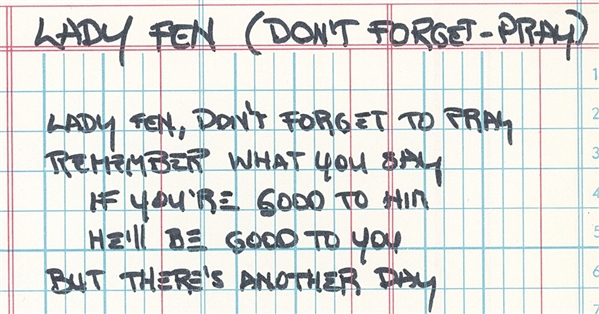 LADY FEN (DON'T FORGET-PRAY)
LADY FEN, DON'T FORGET TO PRAY
REMEMBER WHAT YOU SAY
IF YOU'RE GOOD TO HIM
HE'll BE GOOD TO YOU
BUT THERE'S ANOTHER DAY
1
2
3
4
5
6
7